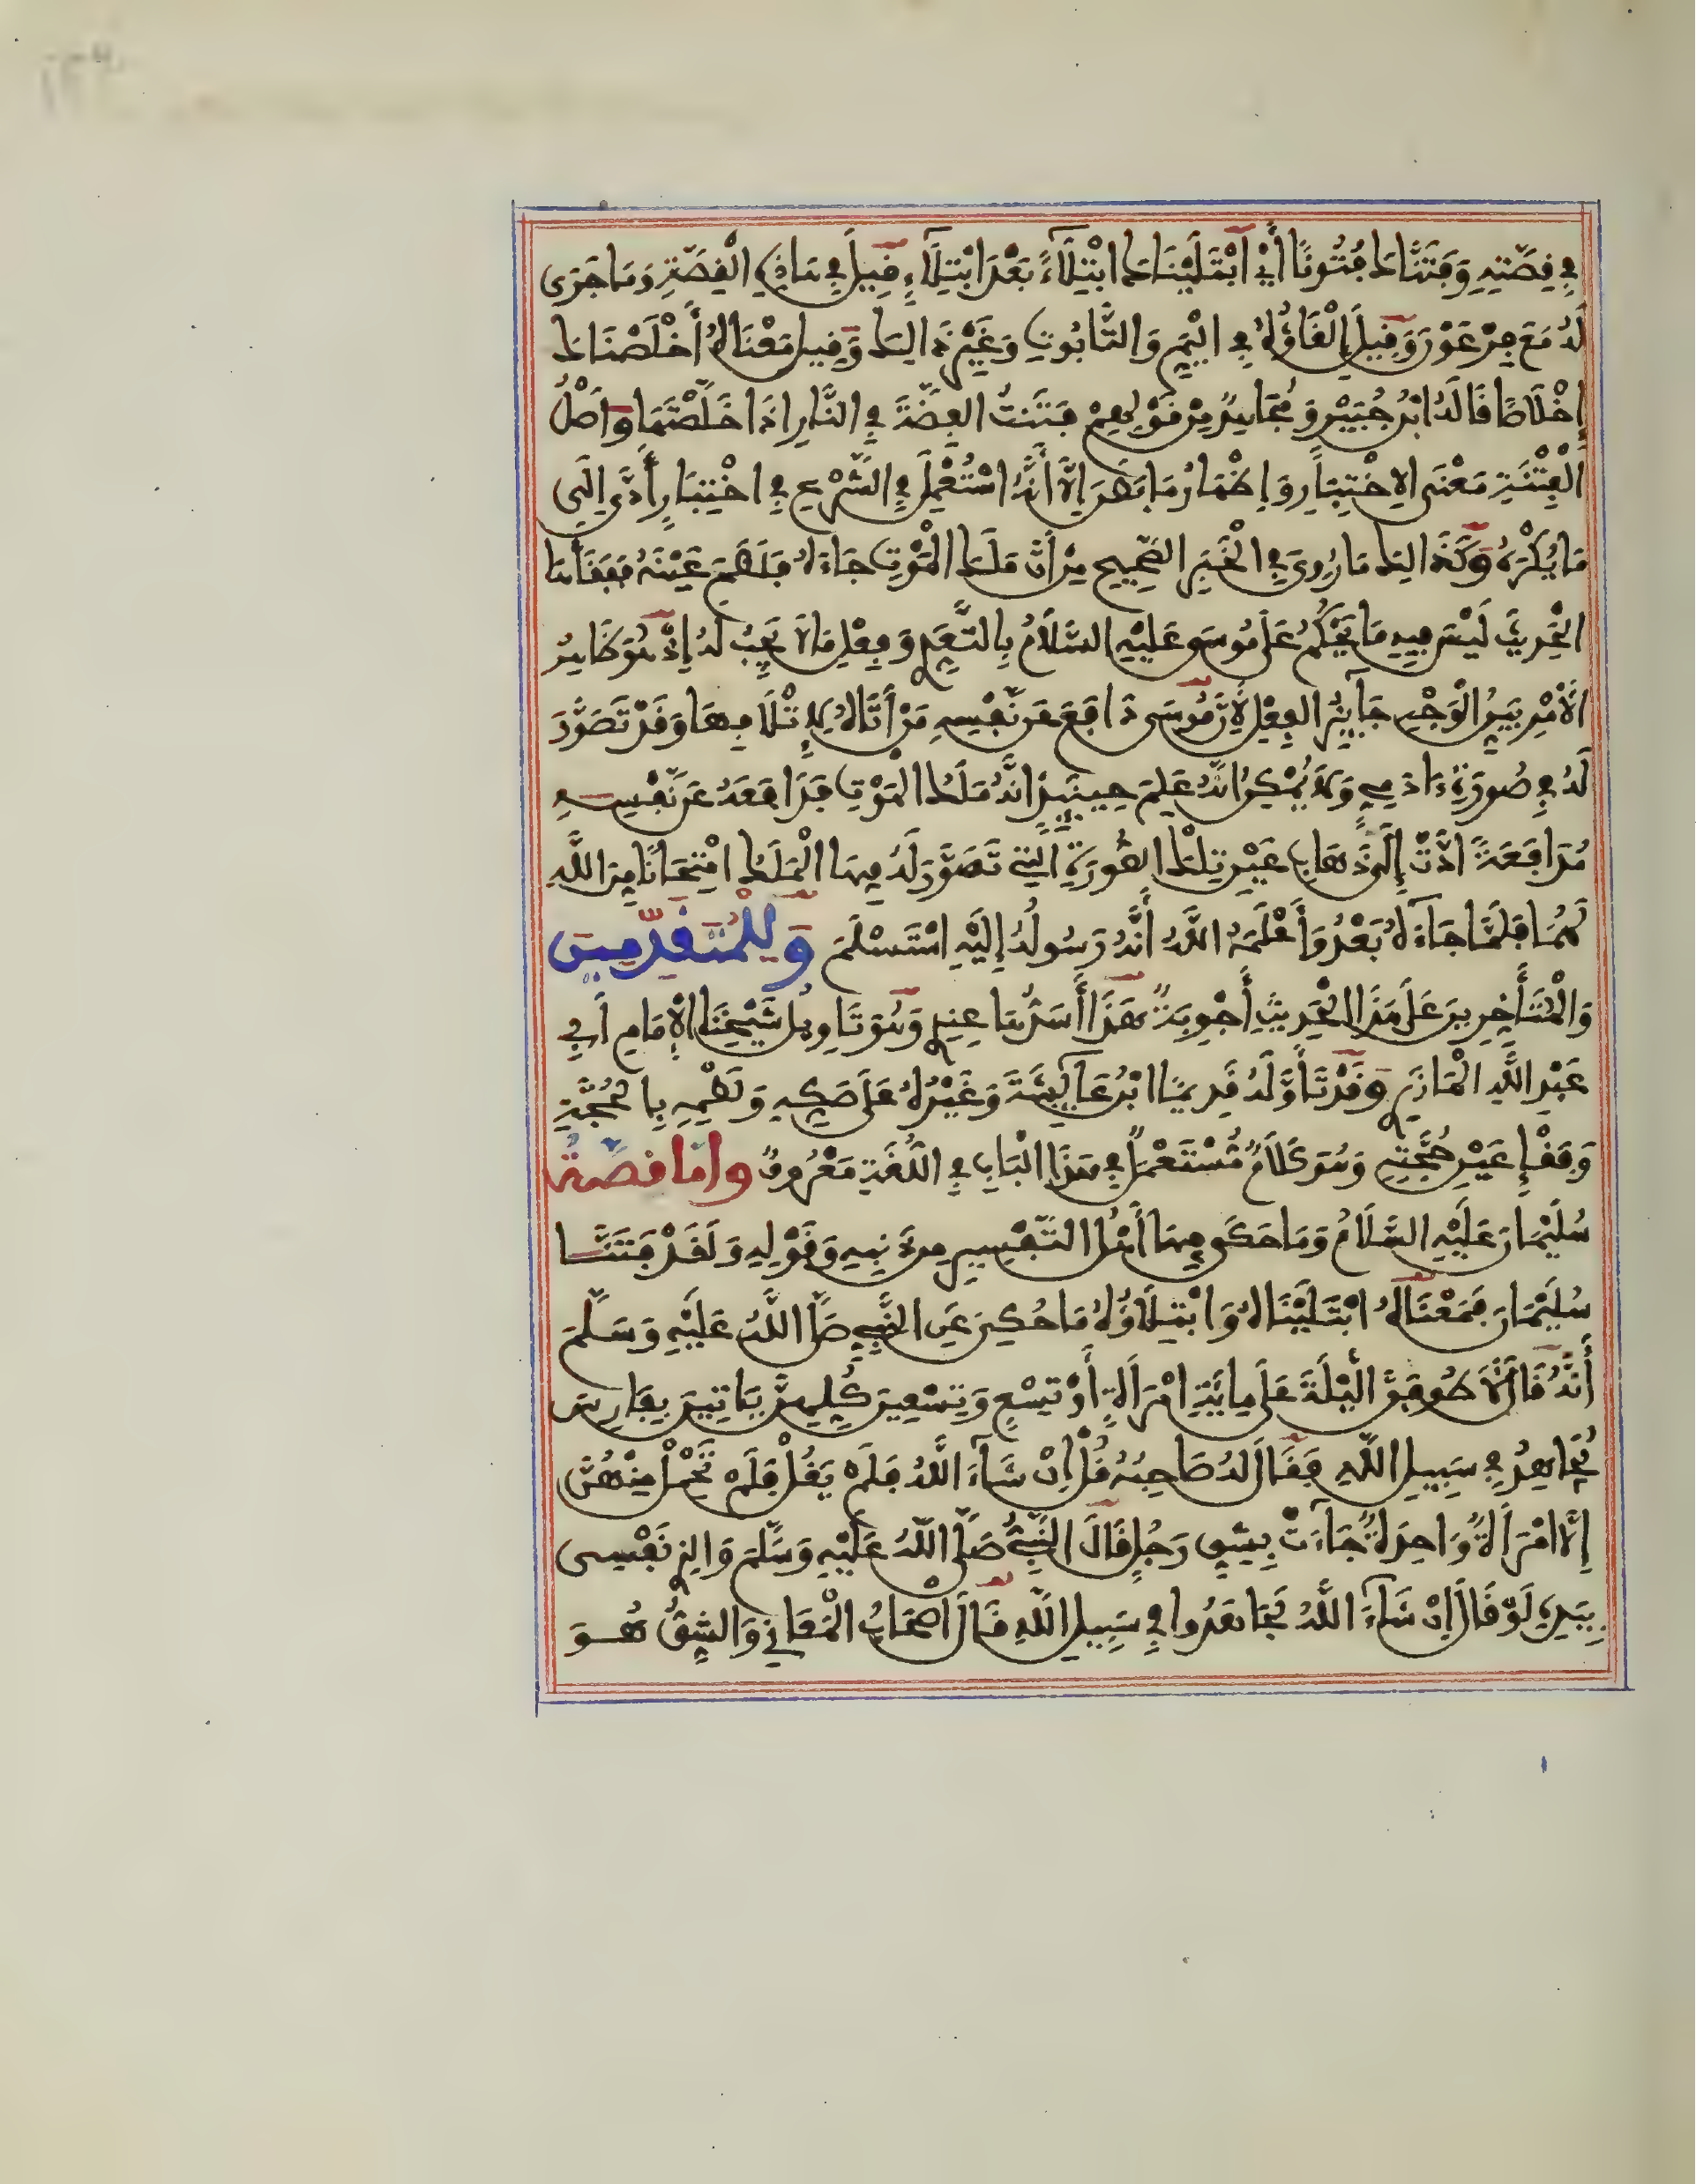 في قصته وفتناك فتونا أي ابتليناك ابتلاء بعد ابتلاء قيل في هاذه القصة وما جرى
له مع فرعون وقيل إلقاؤه في اليم والتابوت وغير ذالك وقيل معناه أخلصناك
إخلاصا قاله ابن جبير ومجاهد من قولهم فتنت الفضة في النار اذا خلصتها وأصل
الفتنة معنى الاختبار وإظهار ما بطن إلا أنه استعمل في الشرع في اختبار أدى إلى
ما يكره وكذالك ما روي في الخبر الصحيح من أن ملك الموت جاءه فلطم عينه ففقأها
الحديث ليس فيه ما يحكم على موسى عليه السلام بالتعدي وفعل ما لا يجب له إذ هو ظاهر
الأمر بين الوجه جائز الفعل لأن موسى دافع عن نفسه من أتاه لإتلافها وقد تصور
له في صورة ءادمي ولا يمكن أنه علم حينئذ أنه ملك الموت فدافعه عن نفسه
مدافعة ادت إلى ذهاب عين تلك الصورة التي تصور له فيها الملك امتحانا من الله
لهما فلما جاءه بعد وأعلمه الله أنه رسوله إليه استسلم وللمتقدمين
والمتأخرين على هذا الحديث أجوبة هذا أسدها عندي وهو تاويل شيخنا الإمام أبي
عبد الله المازري وقد تأوله قديما ابن عائشة وغيره على صكه ولطمه بالحجة
وفقإ عين حجته وهو كلام مستعمل في هذا الباب في اللغة معروف واما قصة
سليمان عليه السلام وما حكى فيها أهل التفسير من ذنبه وقوله ولقد فتنا
سليمان فمعناه ابتليناه وابتلاؤه ما حكي عن النبي صلى الله عليه وسلم
أنه قال لأطوفن الليلة على مائة امرأة أو تسع وتسعين كلهن ياتين بفارس
يجاهد في سبيل الله فقال له صاحبه قل إن شاء الله فلم يقل فلم تحمل منهن
إلا امرأة واحدة جاءت بشق رجل قال النبي صلى الله عليه وسلم والذي نفسي
بيده لو قال إن شاء الله لجاهدوا في سبيل الله قال أصحاب المعاني والشق هو